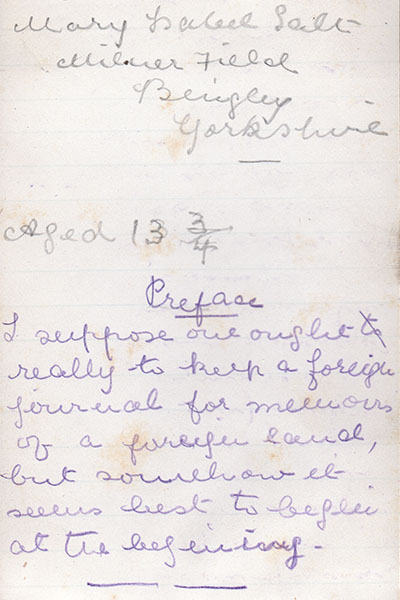 Mary Isabel Salt
Milner Field
Bingley
Yorkshire
Aged 13 3/4
Preface
I suppose one ought to
really to keep a foreign
journal for memoirs
of a foreign land,
but somehow it
seems best to begin
at the begining.